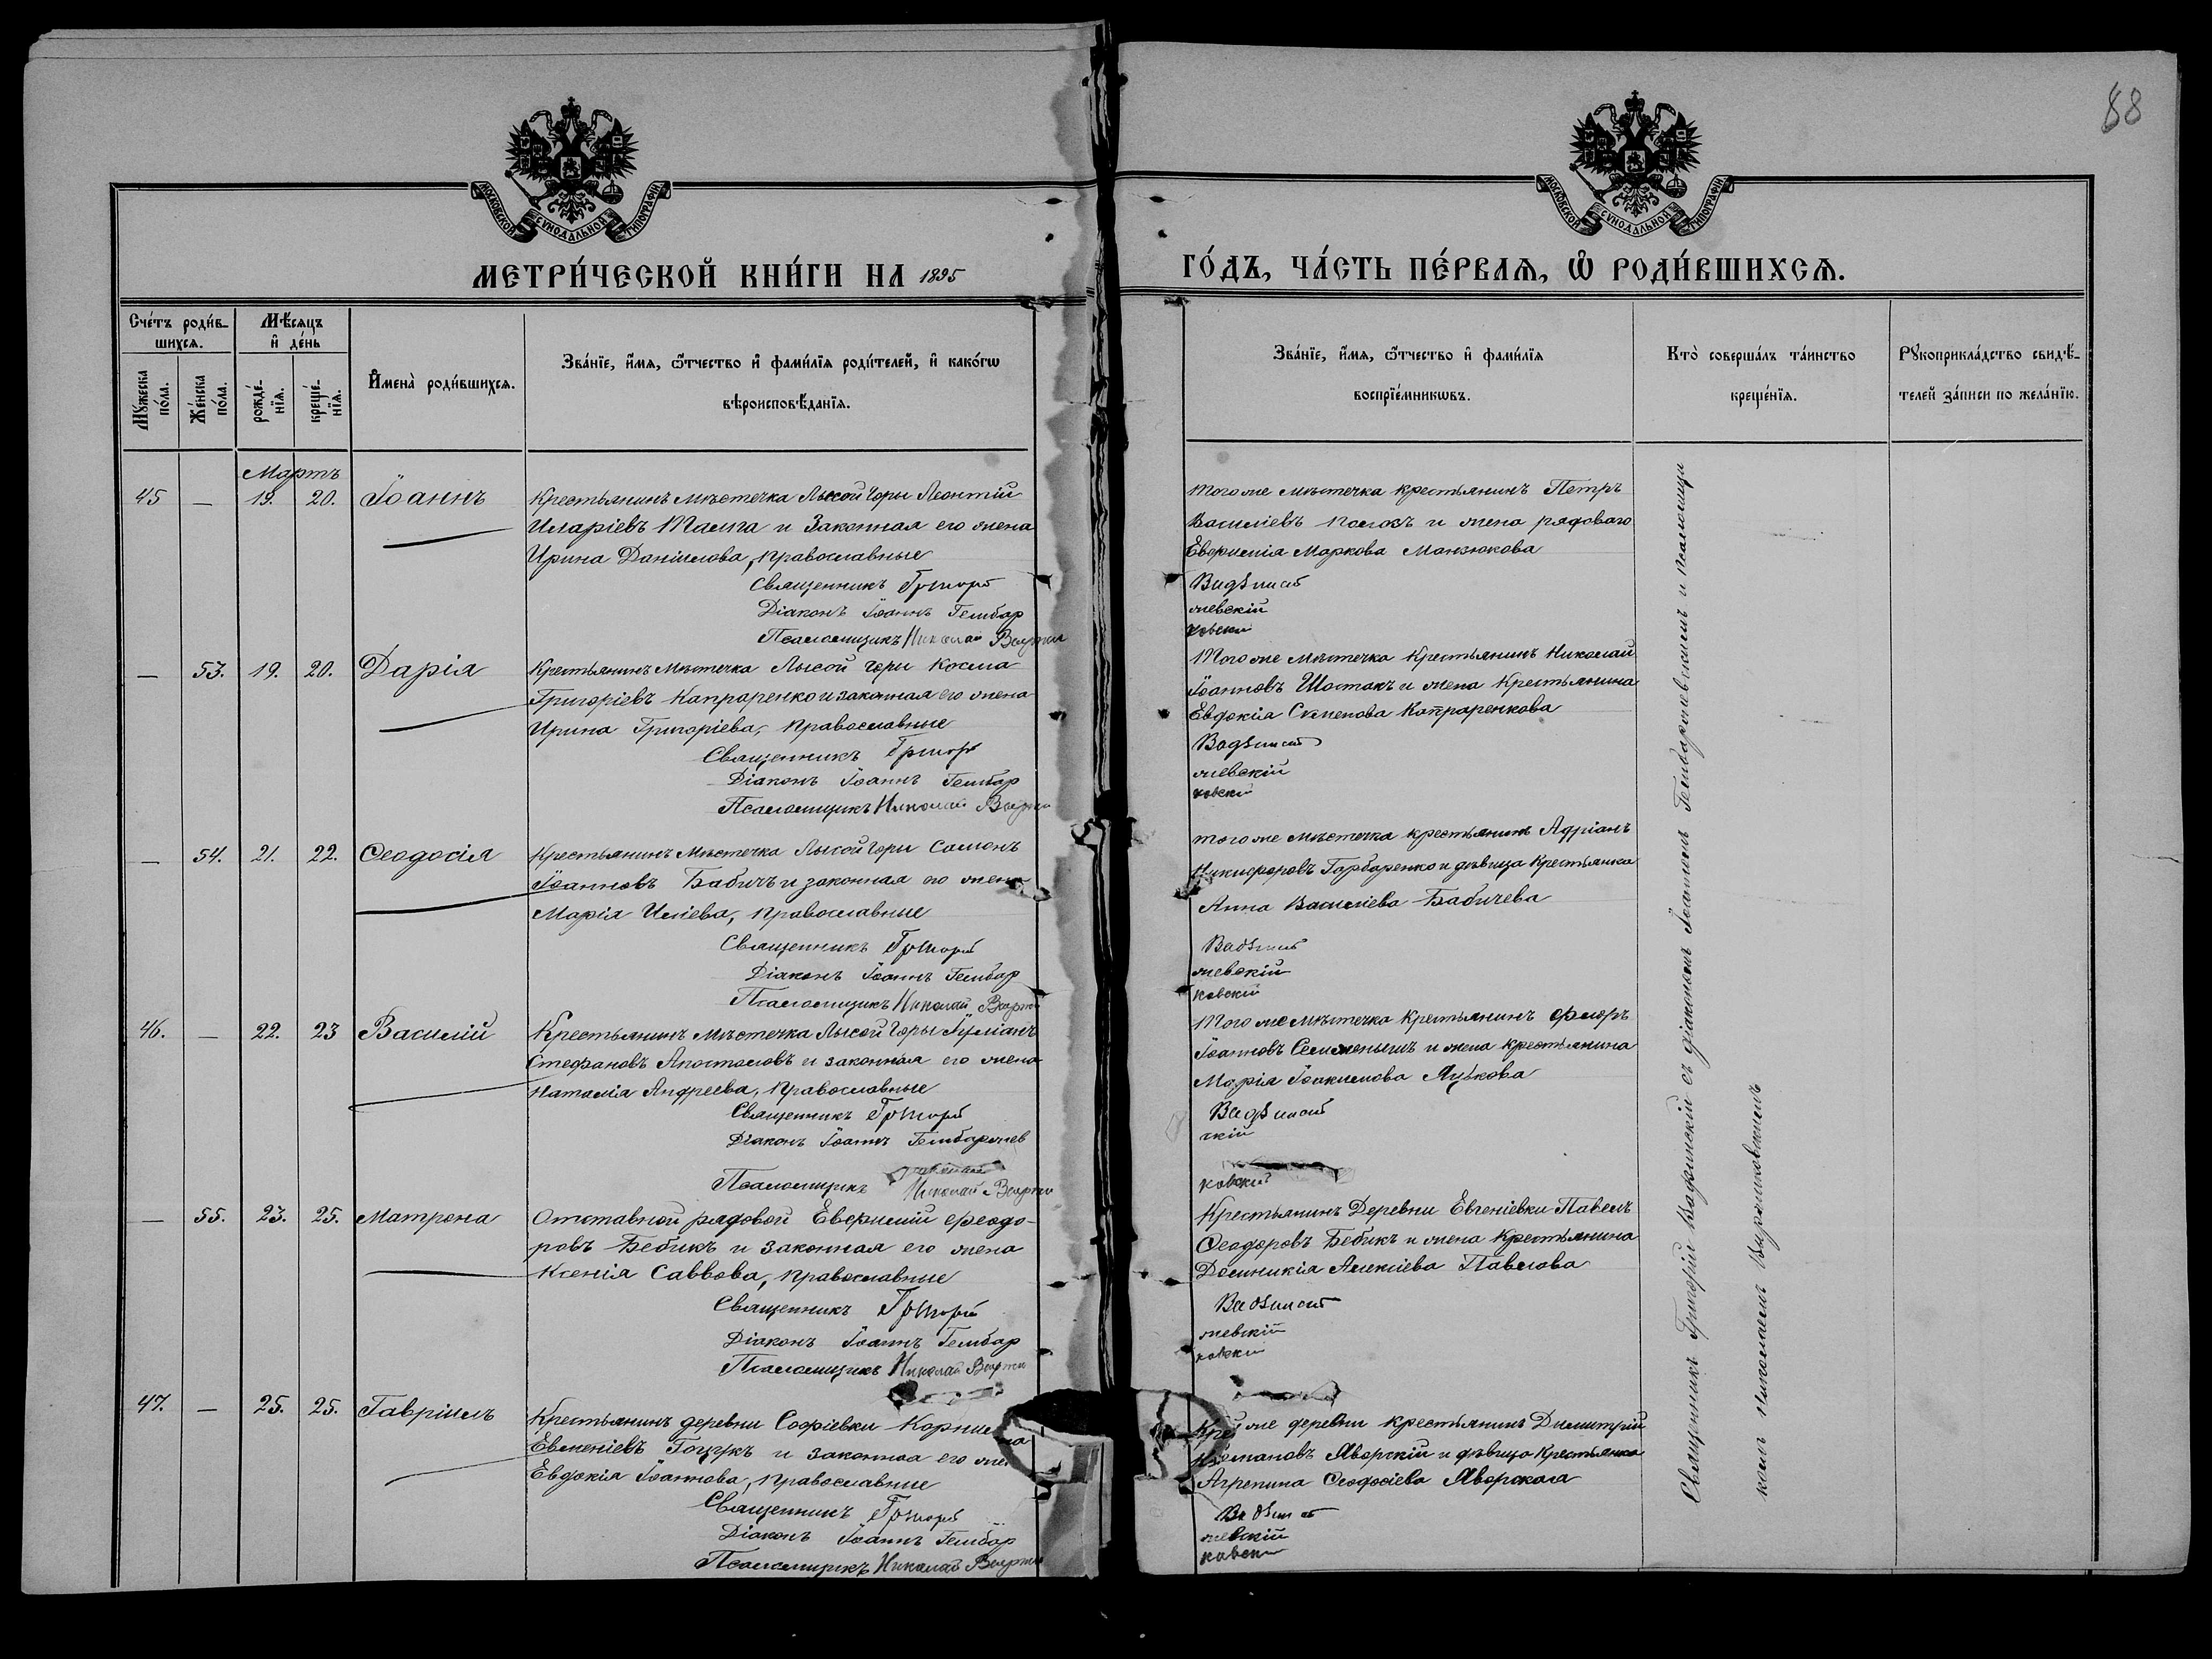 88
МОСКОВСКОЙ СѴНОДАЛЬНОЙ ТИПОГРАФІИ
МОСКОВСКОЙ СѴНОДАЛЬНОЙ ТИПОГРАФІИ
МЕТРИ́ЧЕСКОЙ КНИ́ГИ НА 1895
ГО́ДЪ, ЧА́СТЬ ПЕ́РВАЯ, Ѡ РОДИ́ВШИХСЯ.
Сче́тъ роди́в-
шихся.
Мѣ́сяцъ
и де́нь
Мꙋ́жеска
по́ла.
Же́нска
по́ла.
рожде́-
нїя.
креще́-
нїя.
Имена̀ роди́вшихся.
Зва́нїе, и́мя, ѻ́тчество и фами́лїя роди́телей, и како́гѡ
вѣроисповѣ́данїя.
Зва́нїе, и́мя, ѻ́тчество и фами́лїя
воспрїе́мникѡвъ.
Кто̀ соверша́лъ та́инство
креще́нїя.
Рꙋкоприкла́дство свидѣ́-
телей за́писи по жела́нїю.
Мартъ
45 — 19. 20. Іоаннъ
Крестьянинъ мѣстечка Лысой Горы Леонтій
Иларіевъ и Законная его жена
Ирина Даніилова, православные
Священникъ Григорій
Діаконъ Іоаннъ Гембар
Псаломщикъ Николай
Того же мѣстечка крестьянинъ Петръ
Василіевъ и жена рядоваго
Евфимія Маркова Манзюкова
жевскій
ковскій
— 53. 19. 20. Дарія
Крестьянинъ Мѣстечка Лысой Горы Косма
Григоріевъ Капраренко и законная его жена
Ирина Григоріева, православные
Священникъ Григорій
Діаконъ Іоаннъ Гембар
Псаломщикъ Николай
Того же мѣстечка Крестьянинъ Николай
Іоанновъ Шостакъ и жена Крестьянина
Евдокія Семенова Капраренкова
жевскій
ковскій
— 54. 21. 22. Ѳеодосія
Крестьянинъ Мѣстечка Лысой Горы Самонъ
Іоанновъ Бабичъ и законная его жена
Марія Иліева, православные
Священникъ Григорій
Діаконъ Іоаннъ Гембар
Псаломщикъ Николай
Того же мѣстечка крестьянинъ Адріанъ
Никифоровъ Гарбаренко и дѣвица Крестьянка
Анна Василіева Бабичева
жевскій
ковскій
46. — 22. 23 Василій
Крестьянинъ мѣстечка Лысой Горы Іуліанъ
Стефановъ Апостоловъ и законная его жена
Наталія Андреева, православные
Священникъ Григорій
Діаконъ Іоаннъ Гембаржев
Псаломщикъ Николай
Того же мѣстечка Крестьянинъ Флоръ
Іоанновъ и жена крестьянина
Марія Іоакимова Яцькова
скій
ковскій
— 55. 23. 25. Матрона
Отставной рядовой Евфимій Ѳеодо-
ровъ Бебикъ и законная его жена
Ксенія Саввова, православные
Священникъ Григорій
Діаконъ Іоаннъ Гембар
Псаломщикъ Николай
Крестьянинъ Деревни Евгеніевки Павелъ
Ѳеодоровъ Бебикъ и жена Крестьянина
Домникія Алексіева Павлова
жевскій
ковскій
47. — 25. 25. Гавріилъ
Крестьянинъ деревни Софіевки
Евменіевъ Гоцукъ и законная его
Евдокія Іоаннова, православные
Священникъ Григорій
Діаконъ Іоаннъ Гембар
Псаломщикъ Николай
же деревни крестьянинъ Димитрій
Яворскій и дѣвица Крестьянка
Агрепина Ѳеодосіева Яворская
жевскій
ковскій
Священникъ Григорій съ діакономъ Іоанномъ Гембаржевскимъ и псаломщи
комъ Николаемъ